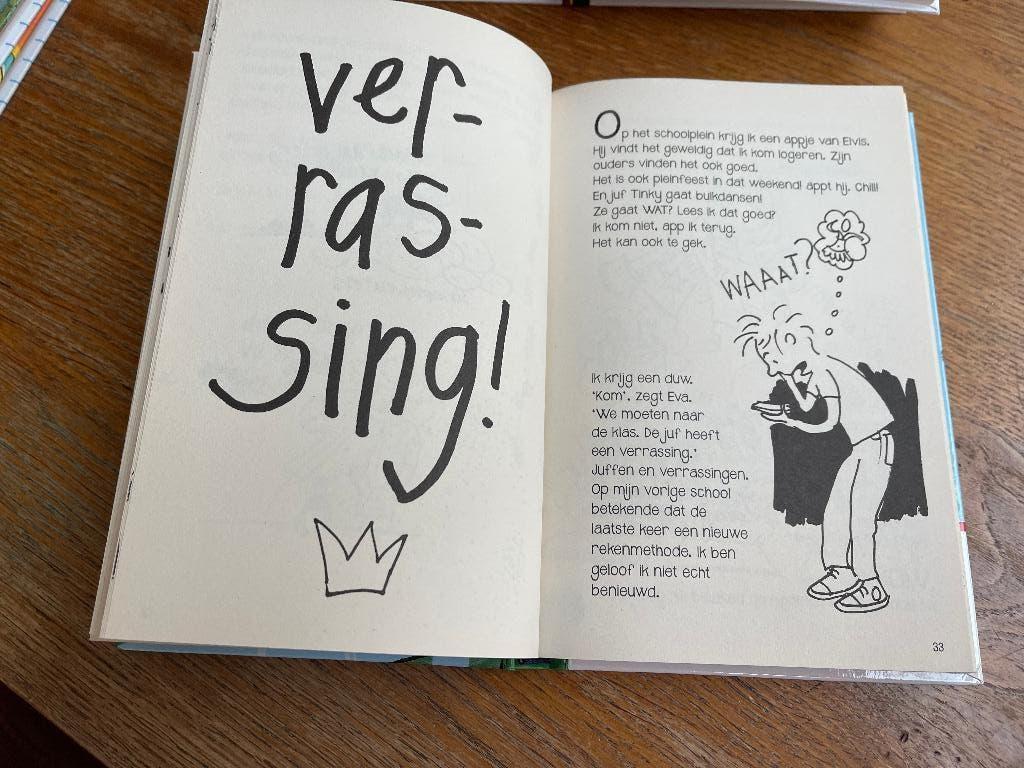 ver-
ras-
sing!
Op het schoolplein krijg ik een appje van Elvis.
Hij vindt het geweldig dat ik kom logeren. Zijn
ouders vinden het ook goed.
Het is ook pleinfeest in dat weekend! appt hij. Chill!
En juf Tinky gaat buikdansen!
Ze gaat WAT? Lees ik dat goed?
Ik kom niet, app ik terug.
Het kan ook te gek.
WAAAT?
Ik krijg een duw.
‘Kom’, zegt Eva.
‘We moeten naar
de klas. De juf heeft
een verrassing.’
Juffen en verrassingen.
Op mijn vorige school
betekende dat de
laatste keer een nieuwe
rekenmethode. Ik ben
geloof ik niet echt
benieuwd.
33